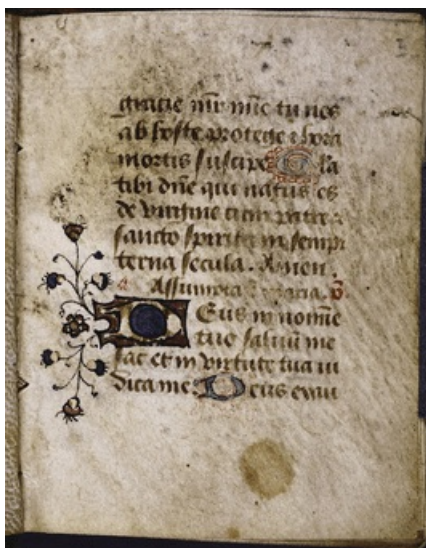 gratie mr mie tu nos
ab hoste protege & hora
mortis suscipe Gl'a
tibi dne qui natus es
de virgine cum patre &
sancto spiritu in sempi
terna secula. Amen.
Assumpta maria.
Deus in nomine
tuo saluū me
fac et in virtute tua iu
dica me. Deus exau